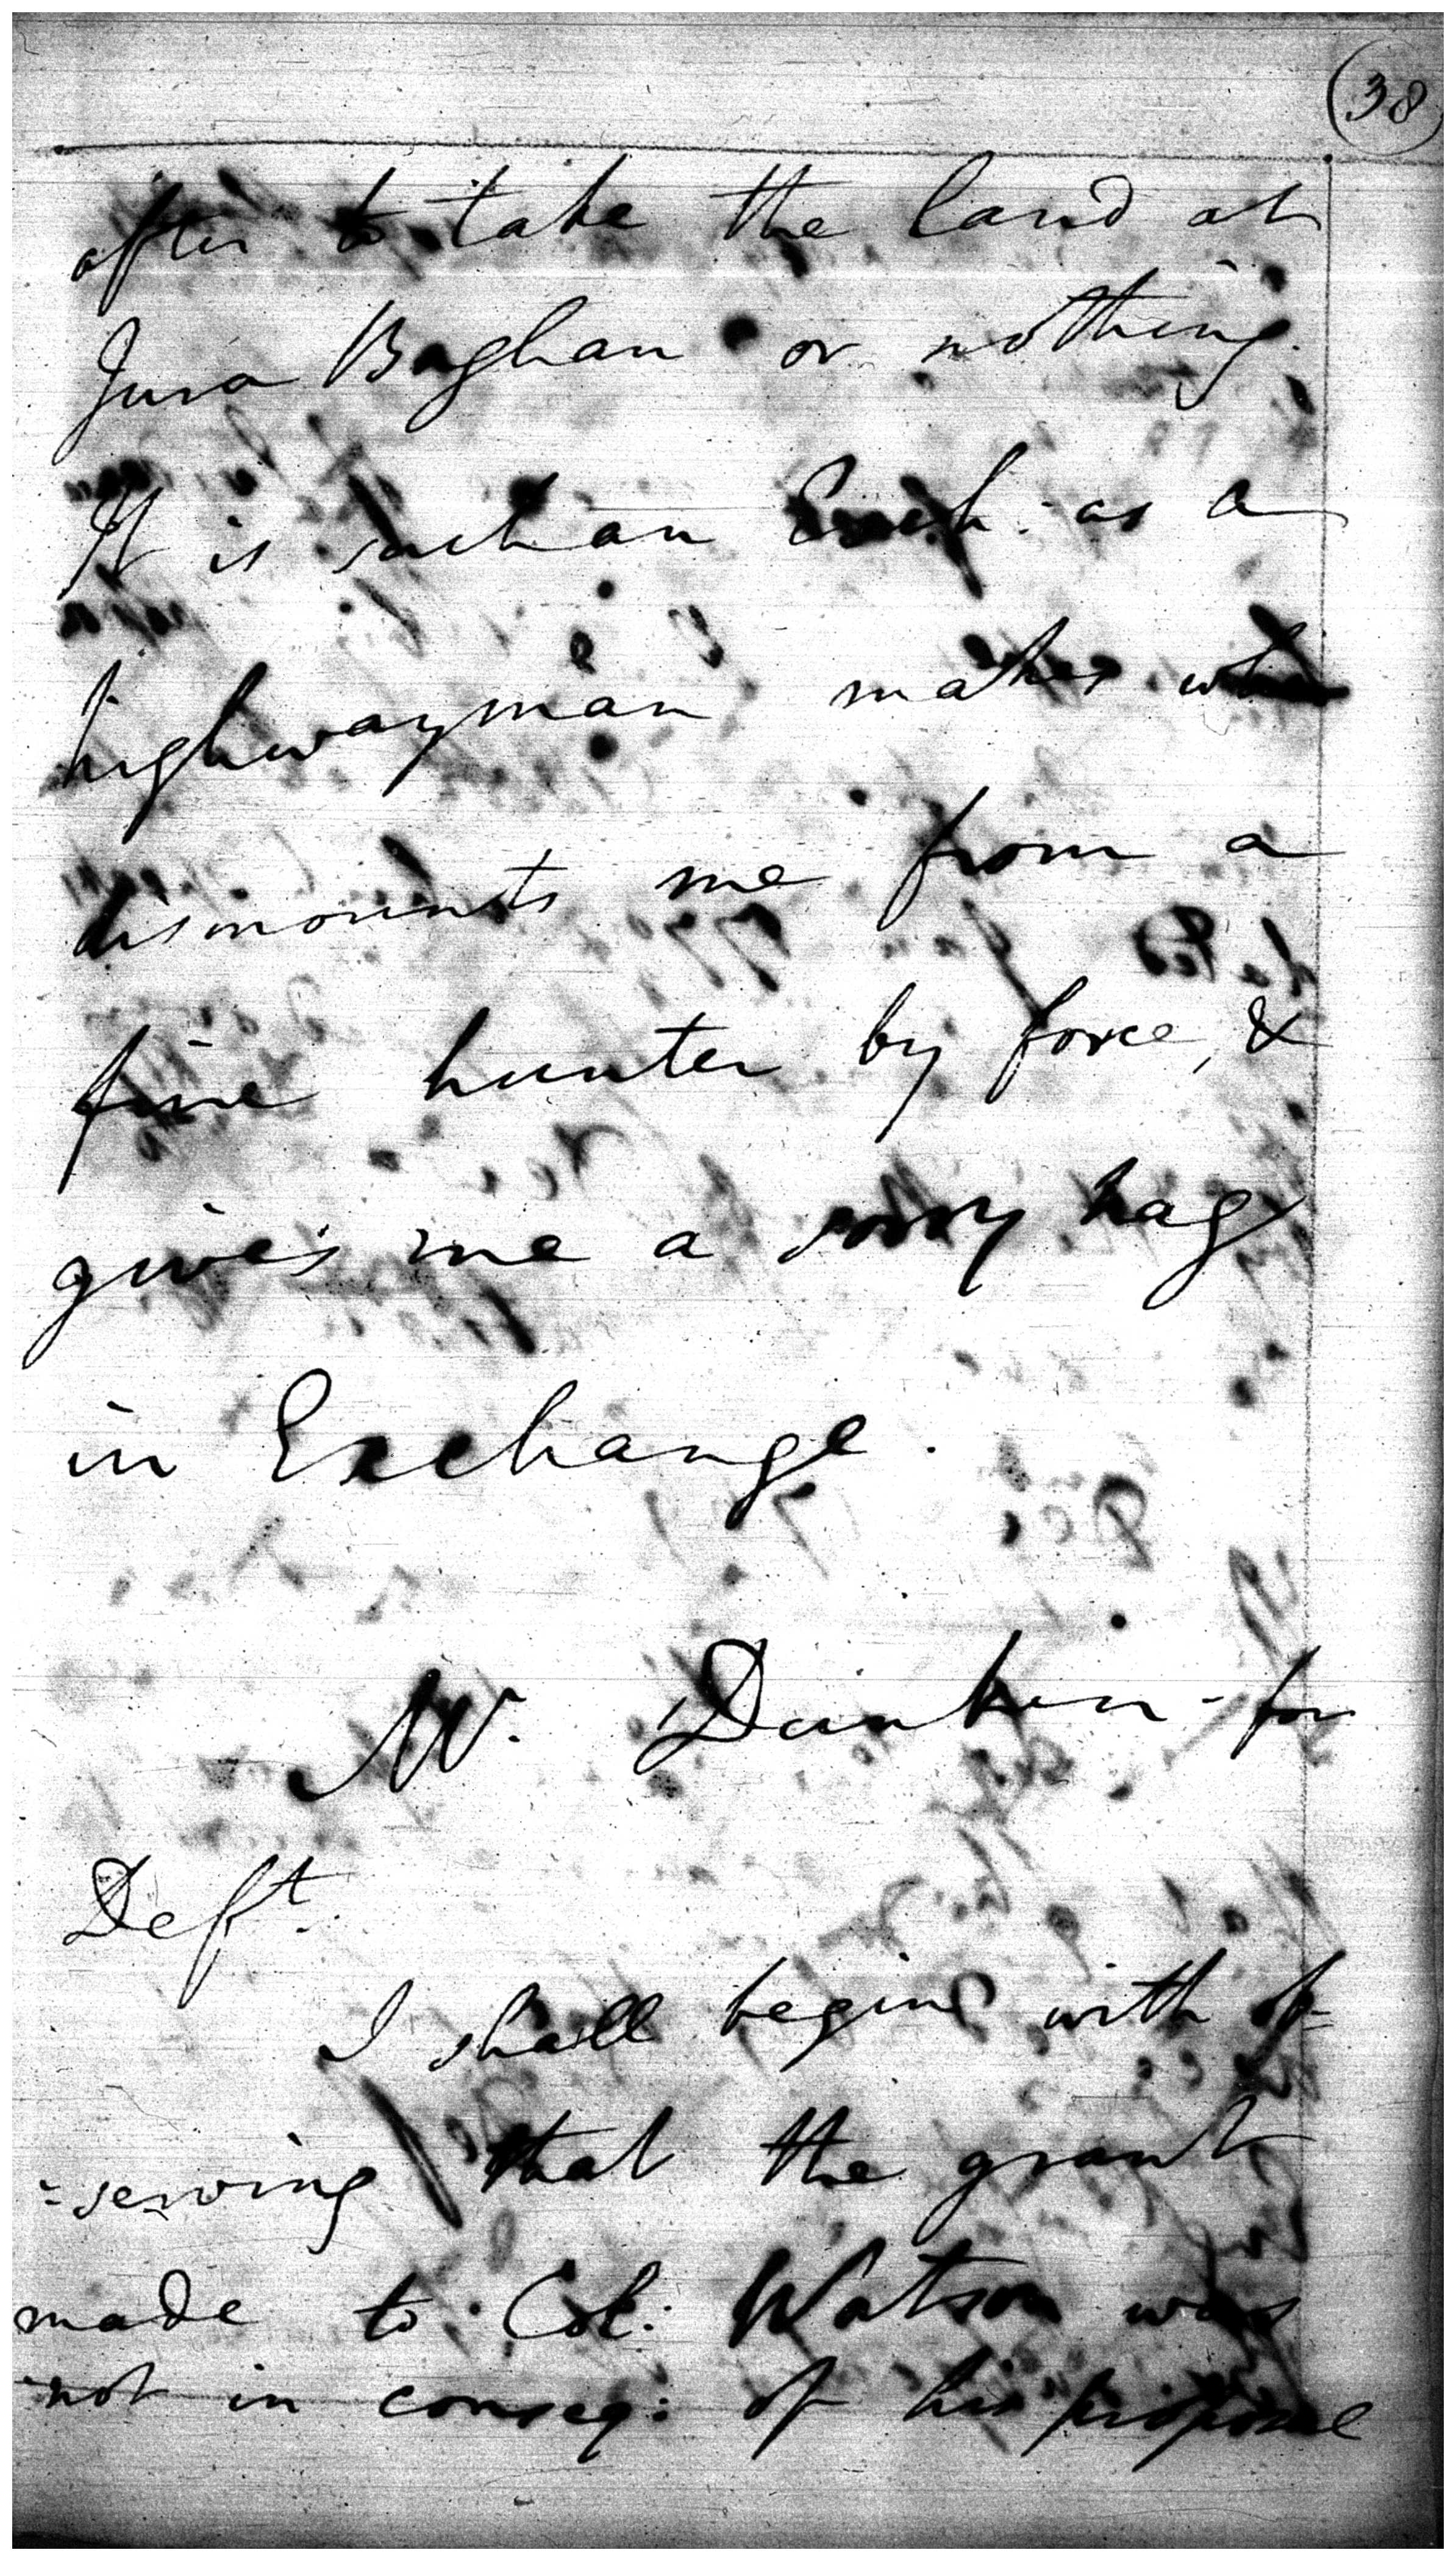 38
after to take the land at
Jura Baghan or nothing.
It is such an Exch: as a
highwayman makes who
dismounts me from a
fine hunter by force, &
gives me a sorry nag
in Exchange.
Mr. Dunkin - for
Deft.
I shall begin with ob=
=serving that the grant
made to Col: Watson was
not in conseq: of his proposal